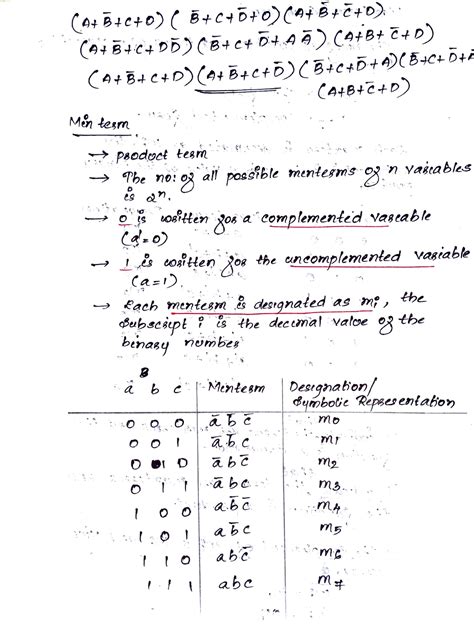 (A+B̄+C+0) ( B̄+C+D̄+0) (A+B̄+C̄+D)
(A+B̄+C+DD̄) (B̄+C+D̄+AĀ) (A+B+C̄+D)
(A+B̄+C+D) (A+B̄+C+D̄) (B̄+C+D̄+A) (B̄+C+D̄+Ā
(A+B+C̄+D)
Min term
→ product term
→ The no: of all possible minterms of n variables
is 2ⁿ.
→ 0 is written for a complemented variable
(a'=0)
→ 1 is written for the uncomplemented variable
(a=1).
→ Each minterm is designated as mi, the
subscript i is the decimal value of the
binary number
a b c Minterm Designation/
Symbolic Representation
0 0 0 ā b̄ c̄ m0
0 0 1 ā b̄ c m1
0 1 0 ā b c̄ m2
0 1 1 ā b c m3
1 0 0 a b̄ c̄ m4
1 0 1 a b̄ c m5
1 1 0 a b c̄ m6
1 1 1 a b c m7